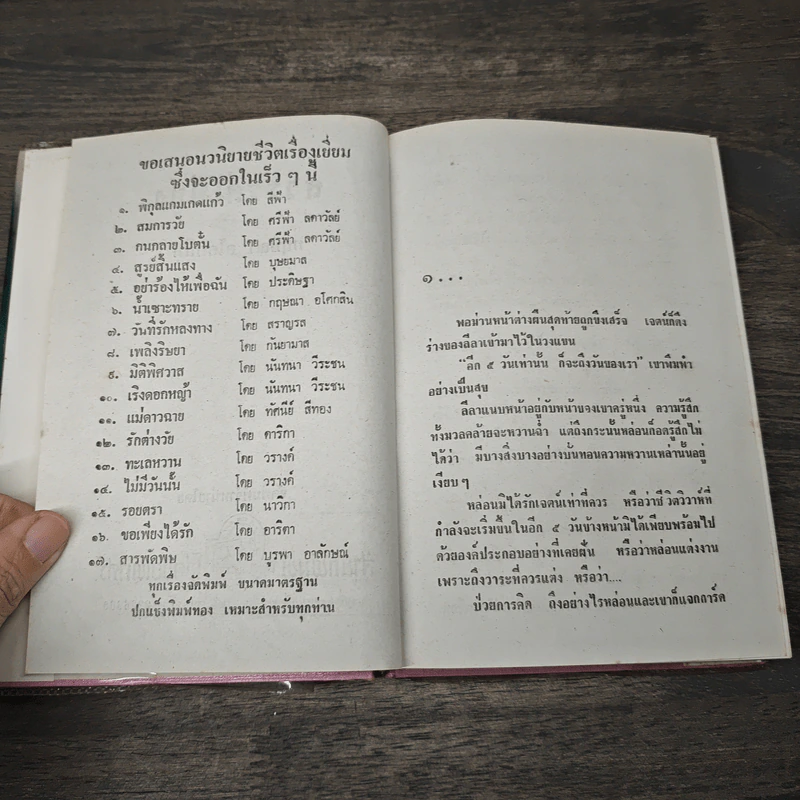 ขอเสนอนวนิยายชีวิตเรื่องเยี่ยม
ซึ่งจะออกในเร็ว ๆ นี้
๑. พิกุลแกมเกดแก้ว โดย สีฟ้า
๒. สมการวัย โดย ศรีฟ้า ลดาวัลย์
๓. กนกลายโบตั๋น โดย ศรีฟ้า ลดาวัลย์
๔. สูรย์สิ้นแสง โดย บุษยมาส
๕. อย่าร้องไห้เพื่อฉัน โดย ประดิษฐา
๖. น้ำเซาะทราย โดย กฤษณา อโศกสิน
๗. วันที่รักหลงทาง โดย สราญรส
๘. เพลิงริษยา โดย กันยามาส
๙. มิติพิศวาส โดย นันทนา วีระชน
๑๐. เริงดอกหญ้า โดย นันทนา วีระชน
๑๑. แม่ดาวฉาย โดย ทัศนีย์ สีทอง
๑๒. รักต่างวัย โดย ดาริกา
๑๓. ทะเลหวาน โดย วรางค์
๑๔. ไม่มีวันนั้น โดย วรางค์
๑๕. รอยตรา โดย นาวิกา
๑๖. ขอเพียงได้รัก โดย อาริตา
๑๗. สารพัดพิษ โดย บุรพา อาลักษณ์
ทุกเรื่องจัดพิมพ์ ขนาดมาตรฐาน
ปกแข็งพิมพ์ทอง เหมาะสำหรับทุกท่าน
๑...
พอม่านหน้าต่างผืนสุดท้ายถูกขึงเสร็จ เจตน์ก็ดึง
ร่างของลีลาเข้ามาไว้ในวงแขน
"อีก ๕ วันเท่านั้น ก็จะถึงวันของเรา" เขาพึมพำ
อย่างเป็นสุข
ลีลาแนบหน้าอยู่กับหน้าของเขาครู่หนึ่ง ความรู้สึก
ทั้งมวลคล้ายจะหวานฉ่ำ แต่ถึงกระนั้นหล่อนก็อดรู้สึกไม่
ได้ว่า มีบางสิ่งบางอย่างบั่นทอนความหวานเหล่านั้นอยู่
เงียบ ๆ
หล่อนมิได้รักเจตน์เท่าที่ควร หรือว่าชีวิตวิวาห์ที่
กำลังจะเริ่มขึ้นในอีก ๕ วันข้างหน้ามิได้เพียบพร้อมไป
ด้วยองค์ประกอบอย่างที่เคยฝัน หรือว่าหล่อนแต่งงาน
เพราะถึงวาระที่ควรแต่ง หรือว่า....
ป่วยการคิด ถึงอย่างไรหล่อนและเขาก็แจกการ์ด